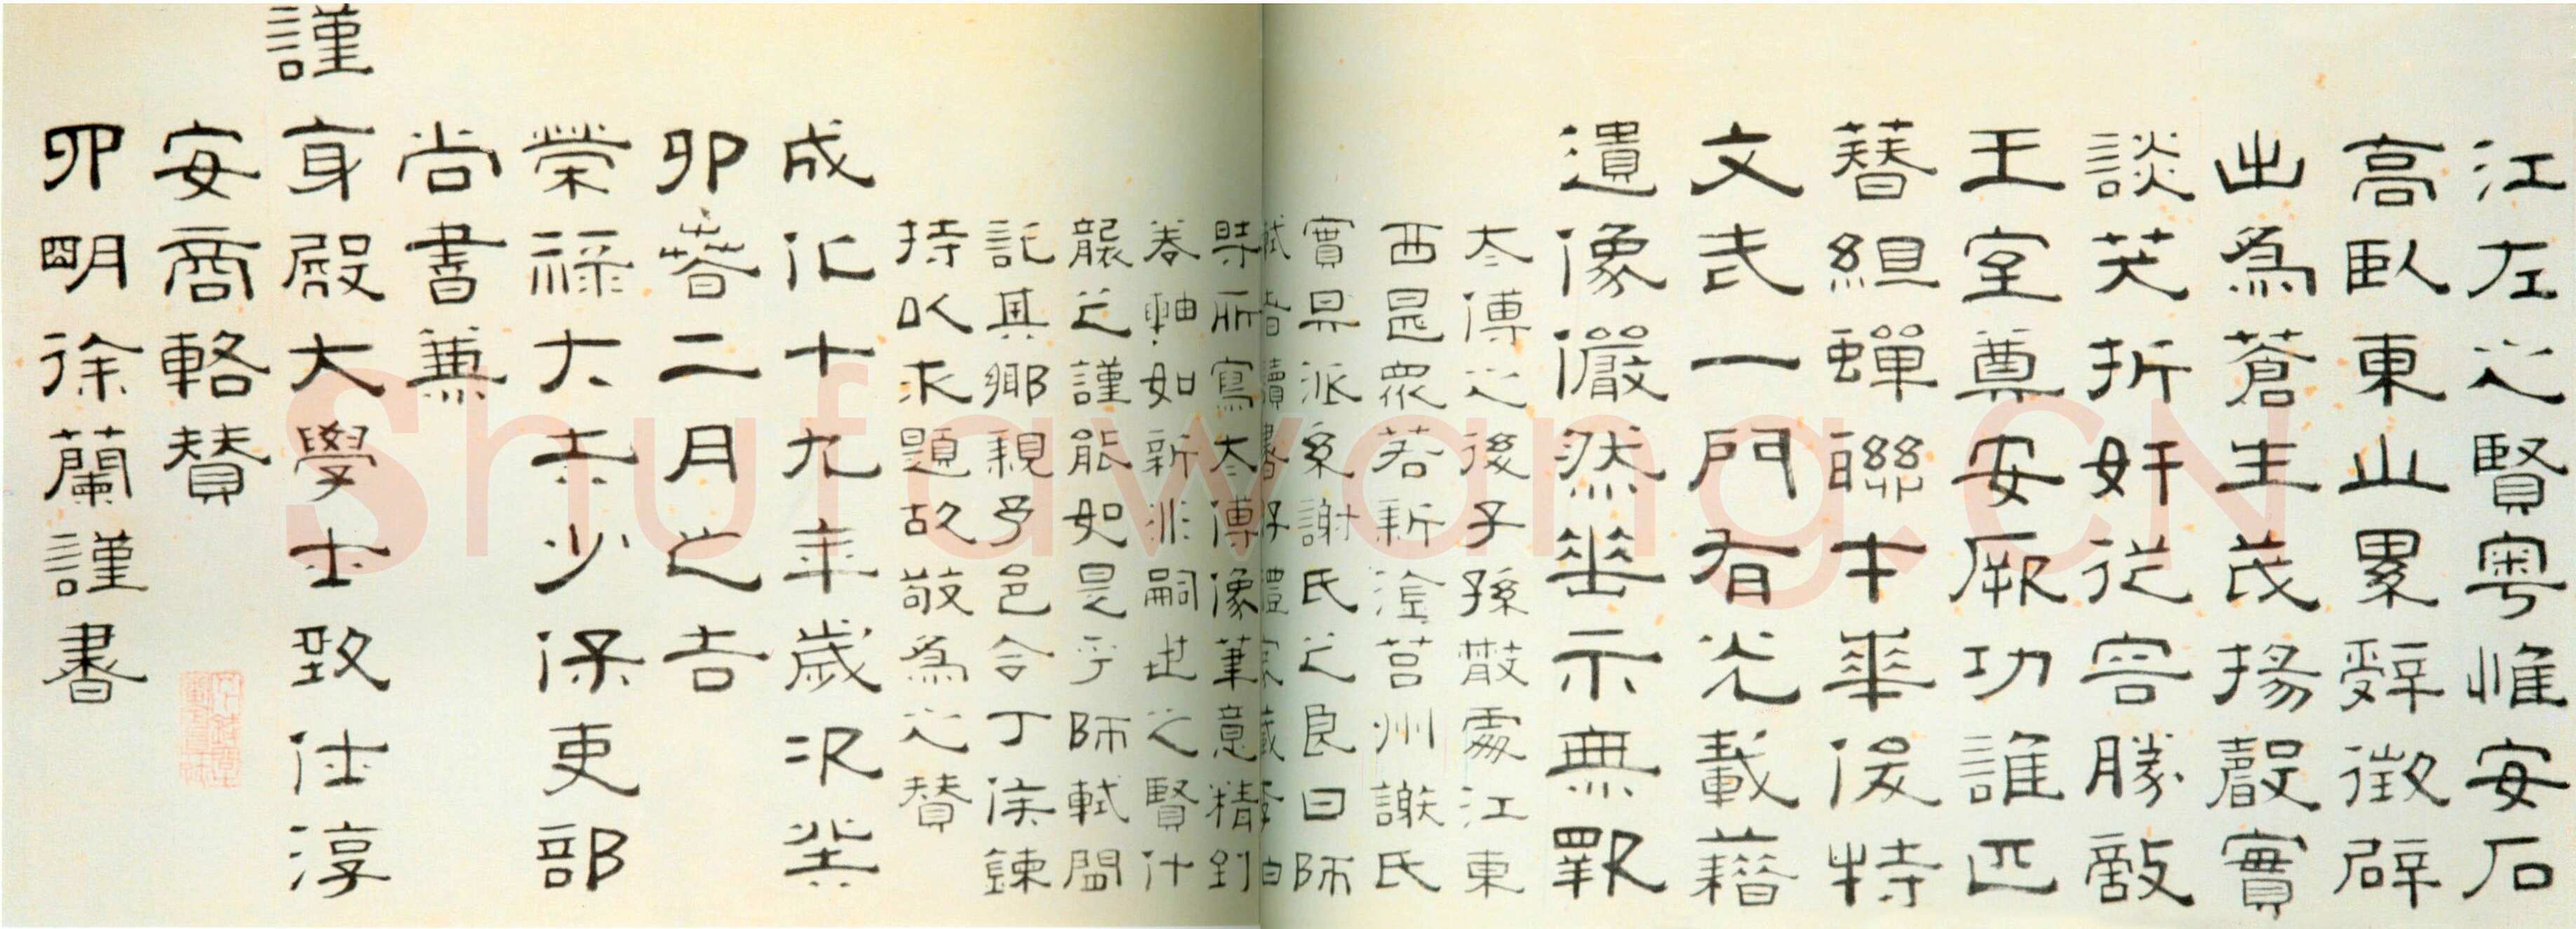 江左之賢粵惟安石
高臥東山累辭徵辟
出為蒼生茂揚聲實
談笑折奸從容勝敵
王室尊安厥功誰匹
替組蟬聯才華俊特
文武一門有光載藉
遺像儼然垂示無斁
太傅之後子孫散處江東
西是眾若新淦莒州謝氏
實其派系謝氏之良曰師
軾者讀書好禮家藏晉伯
時所寫太傅像筆意精到
卷軸如新非嗣世之賢什
襲之謹能如是乎師軾間
託其鄉親予邑令丁侯鍊
持以求題故敬為之贊
成化十九年歲次癸
卯春二月之吉
榮祿大夫少保吏部
尚書兼
謹身殿大學士致仕淳
安商輅贊
四明徐蘭謹書
Shufawang.CN